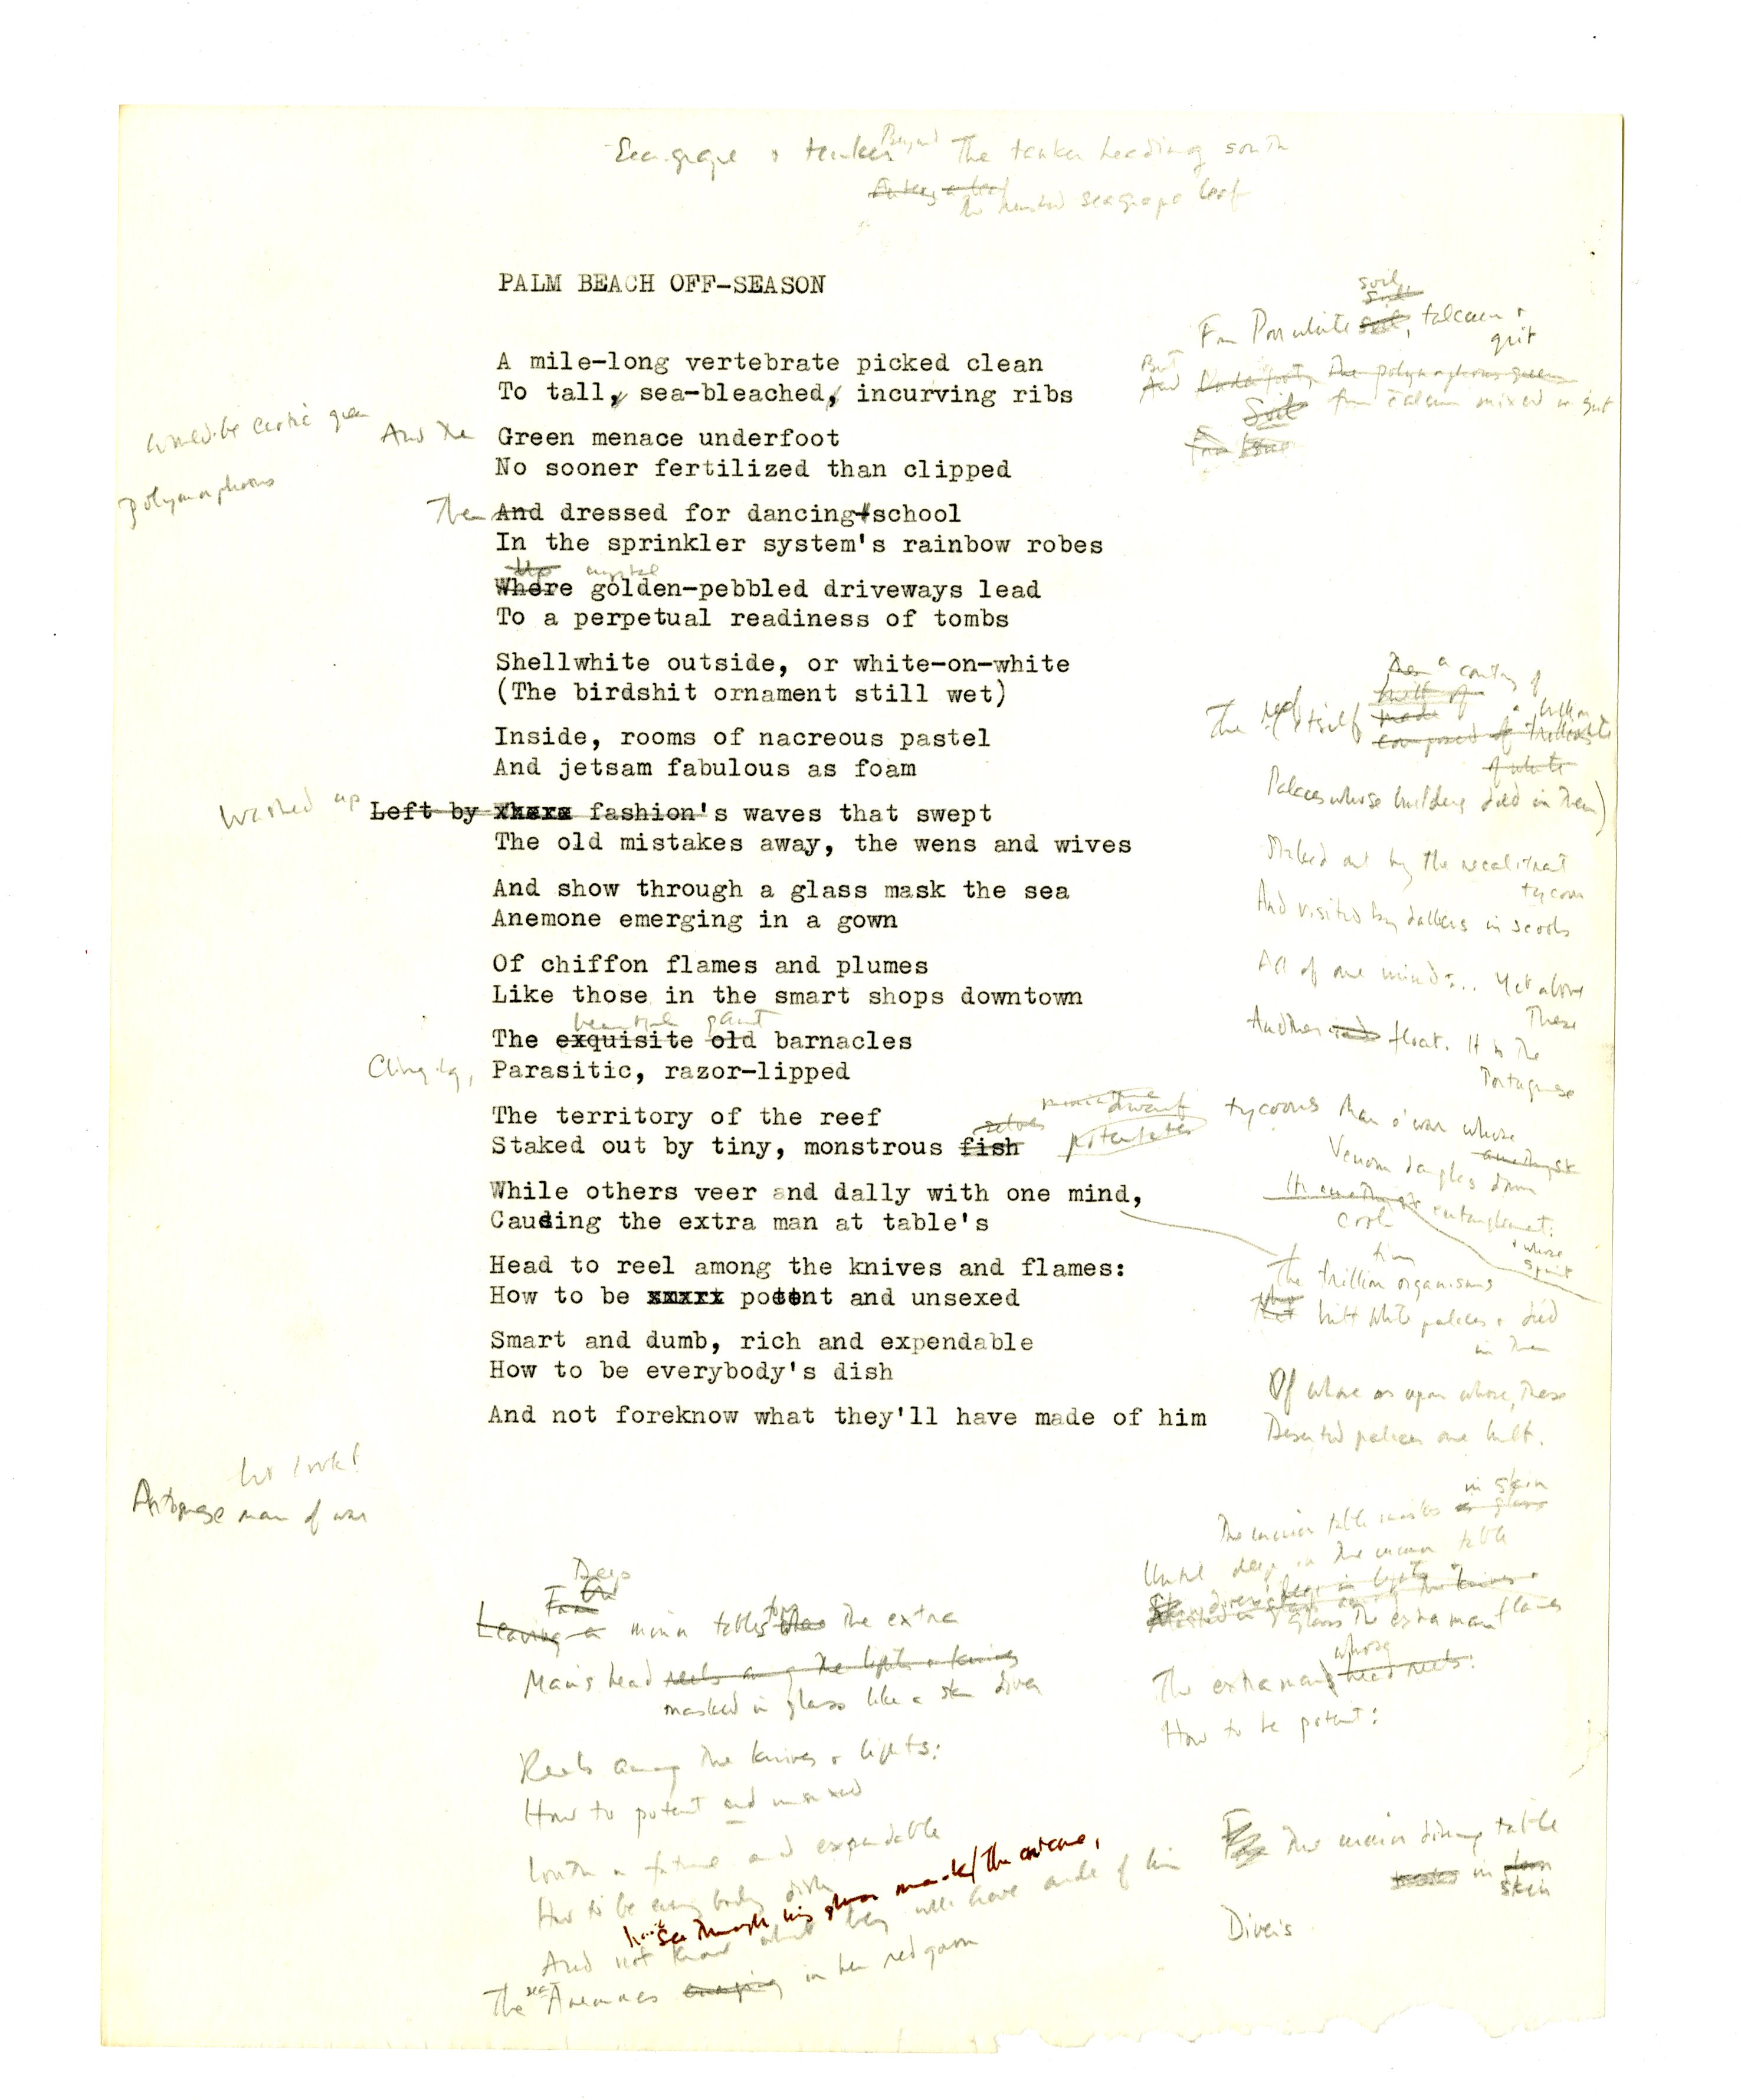 Sea-grape & tanker Beyond The tanker heading south
seagrape leaf
PALM BEACH OFF-SEASON
soil,
From Poor white soil, talcum &
grit
A mile-long vertebrate picked clean
But
And the polymorphous green
To tall, sea-bleached, incurving ribs
Soil from talcum mixed w. grit
green
And the Green menace underfoot
No sooner fertilized than clipped
polymorphous
Then And dressed for dancing-school
In the sprinkler system's rainbow robes
Up crystal
Where golden-pebbled driveways lead
To a perpetual readiness of tombs
Shellwhite outside, or white-on-white
(The birdshit ornament still wet)
Inside, rooms of nacreous pastel
And jetsam fabulous as foam
Washed up Left by fashion's waves that swept
The old mistakes away, the wens and wives
And show through a glass mask the sea
Anemone emerging in a gown
Of chiffon flames and plumes
Like those in the smart shops downtown
beautiful gaunt
The exquisite old barnacles
Clinging, Parasitic, razor-lipped
The territory of the reef
selves miniature dwarf
Staked out by tiny, monstrous fish potentates
While others veer and dally with one mind,
Causing the extra man at table's
Head to reel among the knives and flames:
How to be potent and unsexed
Smart and dumb, rich and expendable
How to be everybody's dish
And not foreknow what they'll have made of him
a century of
built of
The reef itself made
composed of trillions
of white
Palaces whose builders died in them)
Staked out by the recalcitrant
tycoon
And visited by dalliers in schools
All of one mind... Yet above
These
Another float. It is the
Portuguese
tycoons Man o' war whose
amethyst
Venom dangles down
Its amethyst entanglement:
cool
& whose
tiny
The trillion organisms
That built white palaces & died
in them
Of whose or upon whose, these
Deserted palaces are built.
look!
Portuguese man of war
in skin
The mirror table masks as glass
Until deep in the mirror table
Masked in glass The extra man
flames
whose
The extra man's head reels:
How to be potent:
Deep
From
Leaving a mirror table's the extra
Man's head reels among the lights & knives
masked in glass like a skin diver
Reels among the knives & lights:
How to potent and unsexed
and expendable
How to be everybody's dish
see through his glass mask/the
And not know what they will have made of him
The sea Anemones emerging in her red gown
The mirror dining table
masks in skin
Divers